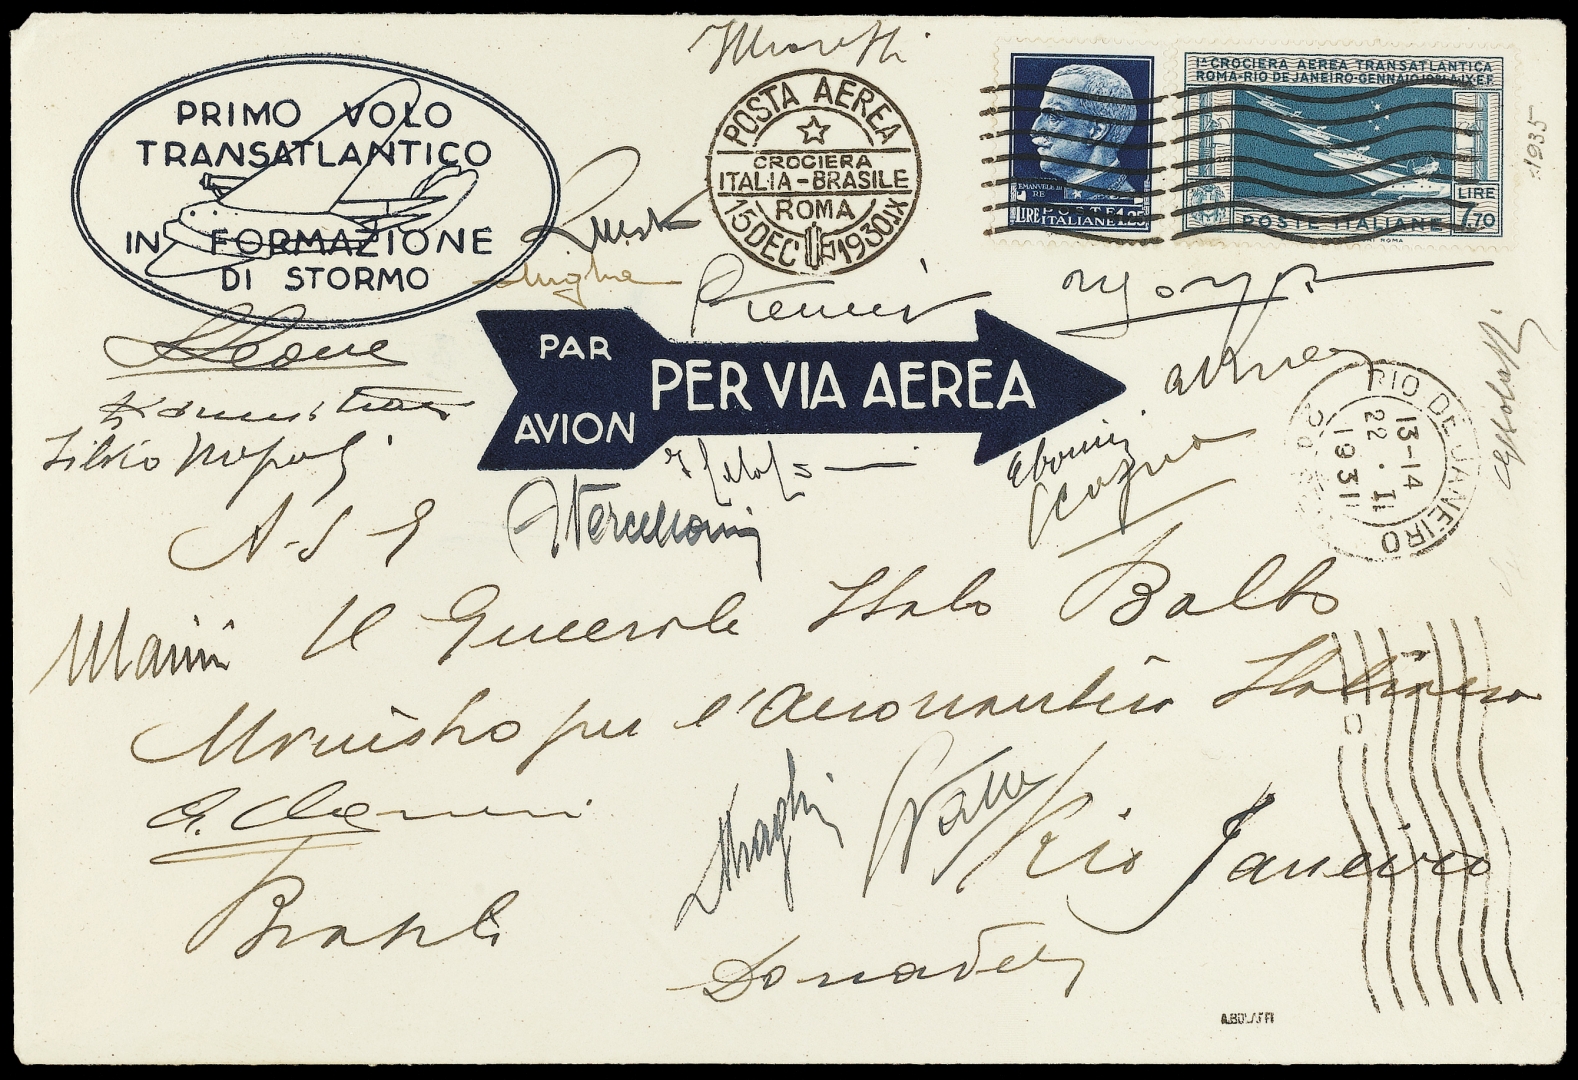 PRIMO VOLO
TRANSATLANTICO
IN FORMAZIONE
DI STORMO
POSTA AEREA
CROCIERA
ITALIA-BRASILE
ROMA
15 DEC 1930 IX
EMANVELE III
RE
POSTE
LIRE ITALIANE 1.25
Iª CROCIERA AEREA TRANSATLANTICA
ROMA-RIO DE JANEIRO-GENNAIO 1931 A. IX E.F.
LIRE
7.70
POSTE ITALIANE
ROMA
1935
PAR
AVION
PER VIA AEREA
RIO DE JANEIRO
13-14
22.II
1931
Leone
Silvio Napoli
Vercelloni
Cagna
A. S. E.
Marini
Il Generale Italo Balbo
Ministro per l'Aeronautica Italiana
Draghi
Valle
Rio Janeiro
Brasile
Donadelli
A.BOLAFFI